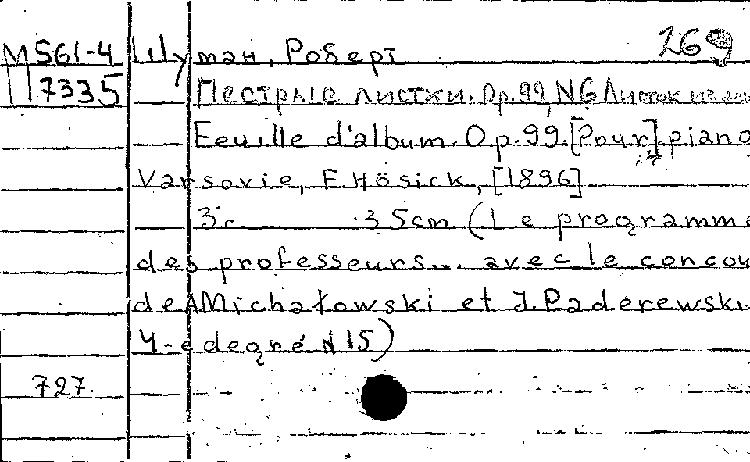 269
М 561-4 Шуман, Роберт
П 7335 Пестрые листки. Op. 99, N6 Листок из
Feuille d'album. Op. 99. [Pour] piano
Varsovie, F. Hösick, [1896]
3 с 35cm (Le programme
des professeurs... avec le concou
de A Michałowski et J. Paderewski
4-e degré N 15)
727.